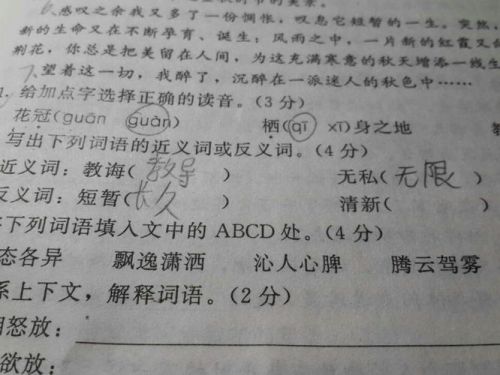 感叹之余我又多了一份惆怅，叹息它短暂的一生。突然，
新的生命又在不断孕育、诞生；风雨之中，一片新的红霞又
荆花，你总是把美留在人间，为这充满寒意的秋天增添一线生
望着这一切，我醉了，沉醉在一派迷人的秋色中……
给加点字选择正确的读音。(3分)
花冠(guān guàn) 栖(qī xī)身之地
写出下列词语的近义词或反义词。(4分)
近义词：教诲(教导) 无私(无限)
反义词：短暂(长久) 清新( )
下列词语填入文中的ABCD处。(4分)
态各异 飘逸潇洒 沁人心脾 腾云驾雾
系上下文，解释词语。(2分)
怒放：
欲放：